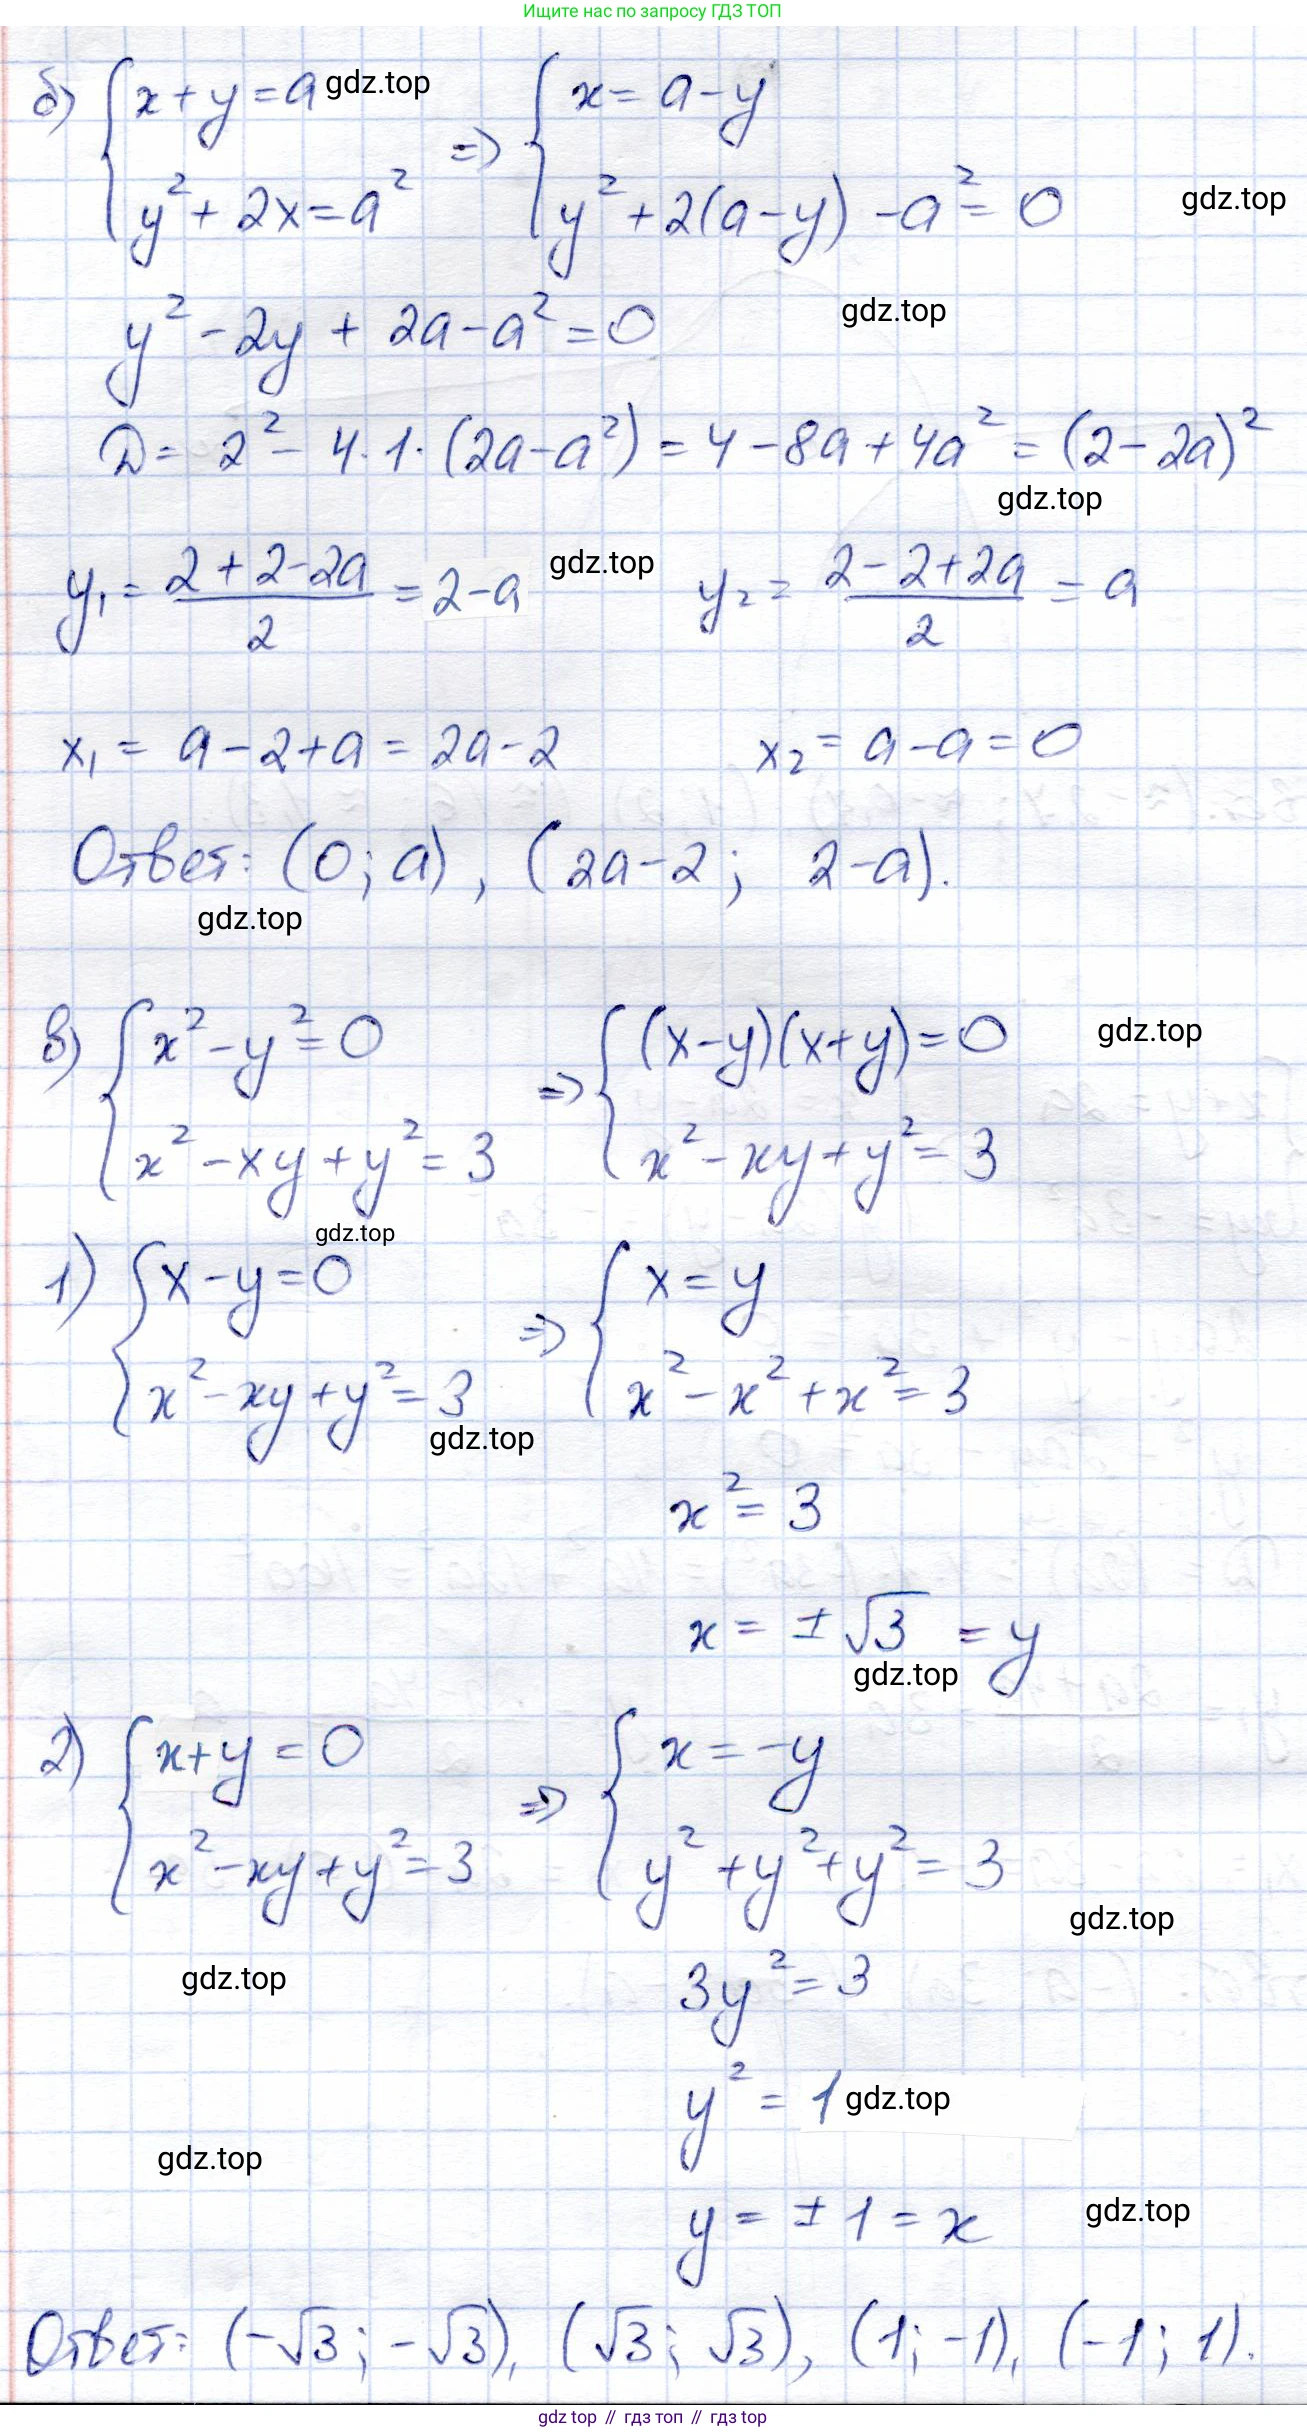 Ищите нас по запросу ГДЗ ТОП
б) { x + y = a gdz.top => { x = a - y
y² + 2x = a² y² + 2(a - y) - a² = 0 gdz.top
y² - 2y + 2a - a² = 0 gdz.top
D = 2² - 4·1·(2a - a²) = 4 - 8a + 4a² = (2 - 2a)²
gdz.top
y₁ = (2 + 2 - 2a)/2 = 2 - a gdz.top y₂ = (2 - 2 + 2a)/2 = a
x₁ = a - 2 + a = 2a - 2 x₂ = a - a = 0
Ответ: (0; a), (2a - 2; 2 - a).
gdz.top
в) { x² - y² = 0 => { (x - y)(x + y) = 0 gdz.top
x² - xy + y² = 3 x² - xy + y² = 3
gdz.top
1) { x - y = 0 => { x = y
x² - xy + y² = 3 x² - x² + x² = 3
gdz.top
x² = 3
x = ±√3 = y
gdz.top
2) { x + y = 0 => { x = -y
x² - xy + y² = 3 y² + y² + y² = 3
gdz.top
gdz.top 3y² = 3
y² = 1 gdz.top
gdz.top
y = ±1 = x gdz.top
Ответ: (-√3; -√3), (√3; √3), (1; -1), (-1; 1).
gdz top // гдз топ // gdz top